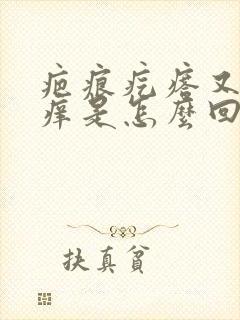 疤痕疙瘩又
痒是怎麼回
扶真貧